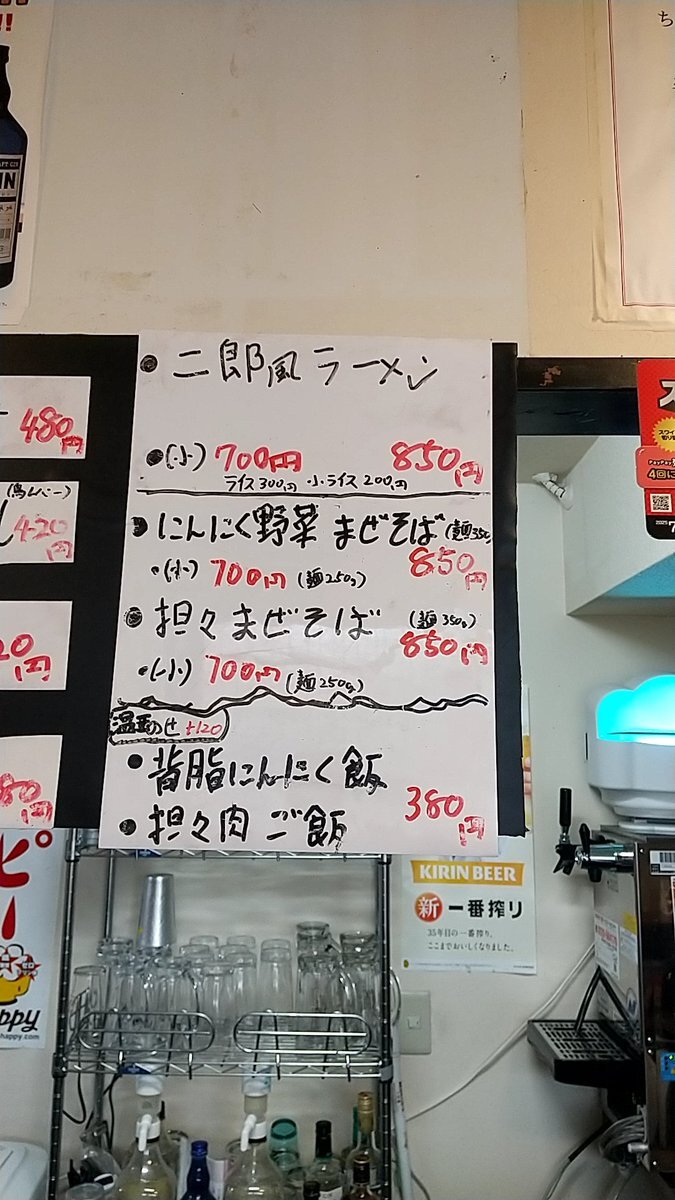 !!
IN
ち
480円
(鳥レバー)
420円
20円
80円
・二郎風ラーメン
・(小) 700円 850円
ライス300円 小ライス200円
・にんにく野菜 まぜそば (麺350
・(小) 700円 (麺250g) 850円
・担々まぜそば (麺350g)
850円
・(小) 700円 (麺250g)
温玉のせ +120
・背脂にんにく飯
・担々肉ご飯 380円
PayPay
4回に
2025
KIRIN BEER
新 一番搾り
35年目の一番搾り、
ここまでおいしくなりました。
ピ
ー
ppy
happy.com